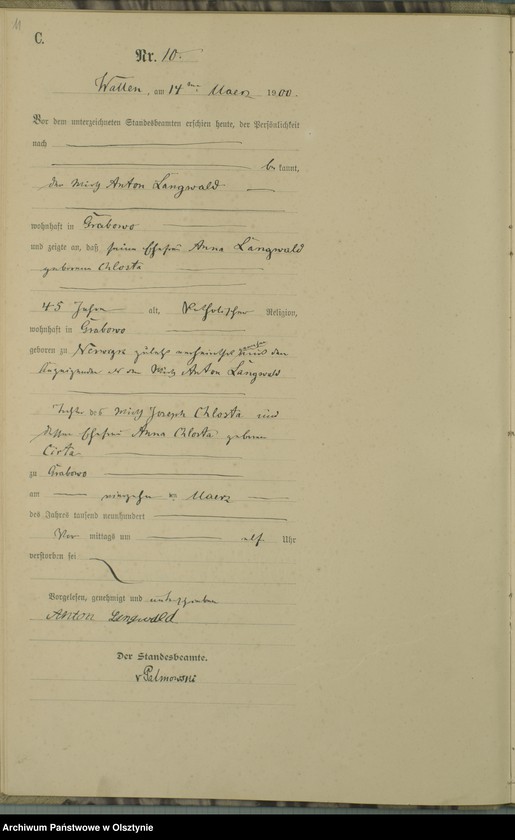 11
C.
Nr. 10.
Watten, am 14ten Maerz 1900.
Vor dem unterzeichneten Standesbeamten erschien heute, der Persönlichkeit
nach
bekannt,
der Wirth Anton Langwald
wohnhaft in Grabowo
und zeigte an, daß seine Ehefrau Anna Langwald
geborene Chlosta
45 Jahre alt, katholischer Religion,
wohnhaft in Grabowo
geboren zu zuletzt verheirathet gewesen mit dem
Anzeigenden dem Wirth Anton Langwald
Tochter des Wirth Joseph Chlosta und
dessen Ehefrau Anna Chlosta geborene
zu Grabowo
am vierzehn ten Maerz
des Jahres tausend neunhundert
Vor mittags um elf Uhr
verstorben sei
Vorgelesen, genehmigt und unterschrieben
Anton Langwald
Der Standesbeamte.
v Palmowski
Archiwum Państwowe w Olsztynie